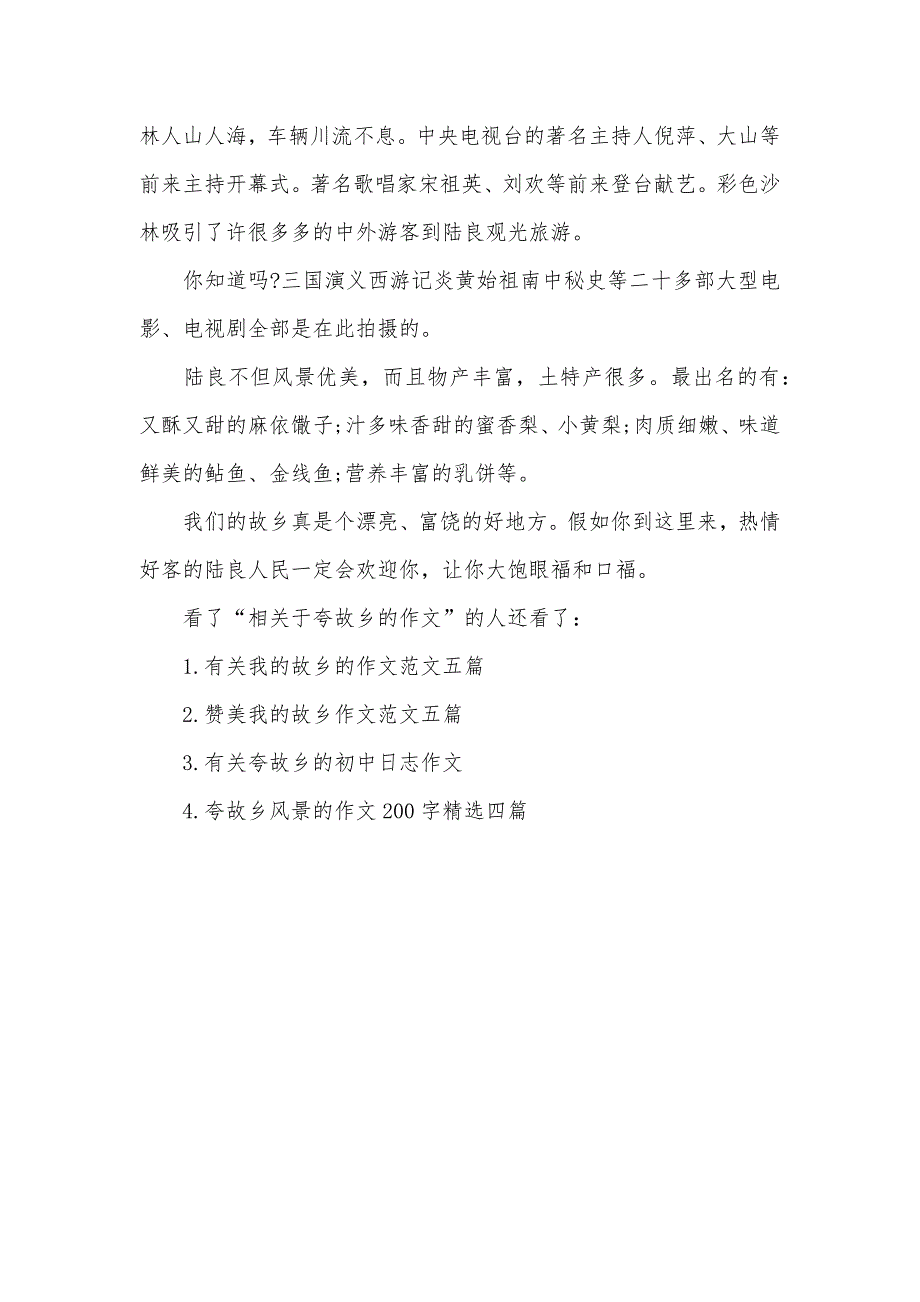 林人山人海，车辆川流不息。中央电视台的著名主持人倪萍、大山等
前来主持开幕式。著名歌唱家宋祖英、刘欢等前来登台献艺。彩色沙
林吸引了许很多多的中外游客到陆良观光旅游。
你知道吗?三国演义西游记炎黄始祖南中秘史等二十多部大型电
影、电视剧全部是在此拍摄的。
陆良不但风景优美，而且物产丰富，土特产很多。最出名的有:
又酥又甜的麻依馓子;汁多味香甜的蜜香梨、小黄梨;肉质细嫩、味道
鲜美的鲇鱼、金线鱼;营养丰富的乳饼等。
我们的故乡真是个漂亮、富饶的好地方。假如你到这里来，热情
好客的陆良人民一定会欢迎你，让你大饱眼福和口福。
看了“相关于夸故乡的作文”的人还看了:
1.有关我的故乡的作文范文五篇
2.赞美我的故乡作文范文五篇
3.有关夸故乡的初中日志作文
4.夸故乡风景的作文200字精选四篇